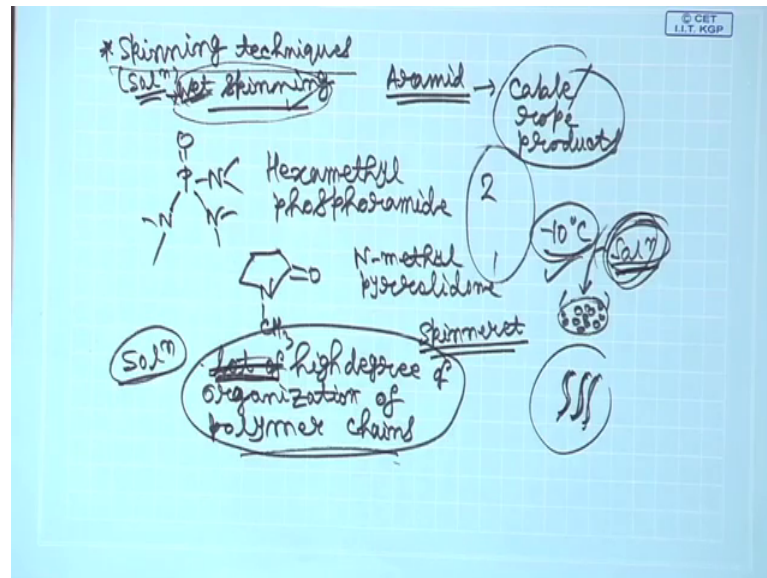 © CET
I.I.T. KGP
* Spinning techniques
(Solⁿ) Wet Spinning
Aramid → Cable/
rope
products
O
P-N
N N
Hexamethyl
phosphoramide
2
1
-10°C
Solⁿ
N
=O
CH3
N-methyl
pyrrolidone
Spinneret
Solⁿ
Lot of high degree of
organization of
polymer chains